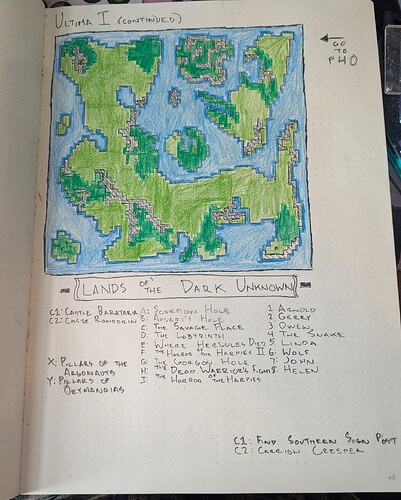 ULTIMA I (CONTINUED)
GO
TO
P40
LANDS OF THE DARK UNKNOWN
C1: CASTLE BARATARIA
C2: CASTLE RONDORIN
X: PILLARS OF THE
ARGONAUTS
Y: PILLARS OF
OZYMANDIAS
A: SCORPION HOLE
B: HOLE
C: THE SAVAGE PLACE
D: THE LABYRINTH
E: WHERE HERCULES DIED
F: THE HORROR OF THE HARPIES II
G: THE GORGON HOLE
H: THE DEAD WARRIOR'S FIGHT
I: THE HORROR OF THE HARPIES
1: ARNOLD
2: GERRY
3: OWEN
4: THE SNAKE
5: LINDA
6: WOLF
7: JOHN
8: HELEN
C1: FIND SOUTHERN SIGN POST
C2: CARRION CREEPER